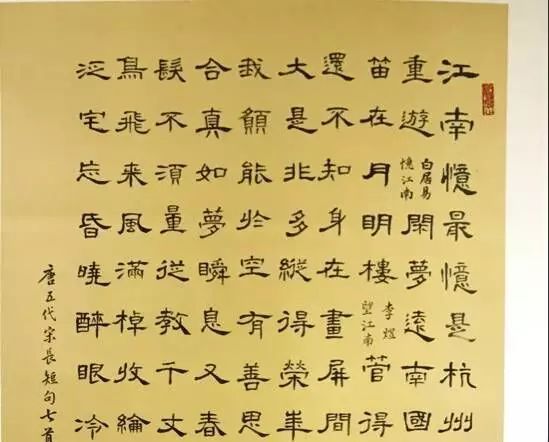 江南憶最憶是杭州
重遊
白居易
憶江南
閑夢遠南國
笛在月明樓
李煜
望江南
管得
還不知身在畫屏間
大是非多縱得榮華
我願能於空有善思
合真如夢瞬息又春
髮不須量從教千丈
鳥飛来風滿棹收綸
泛宅忘昏曉醉眼冷
唐五代宋長短句七首